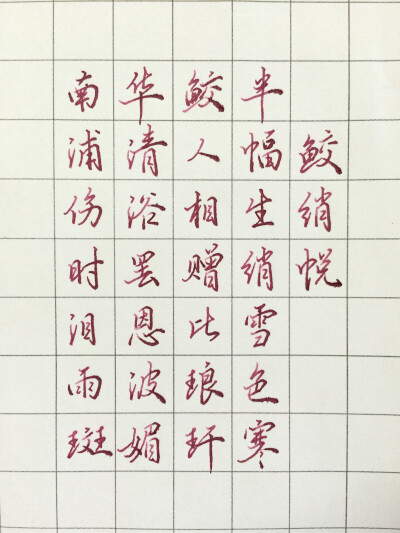 鲛绡帨
半幅生绡雪色寒
鲛人相赠比琅玕
华清浴罢恩波媚
南浦伤时泪雨斑